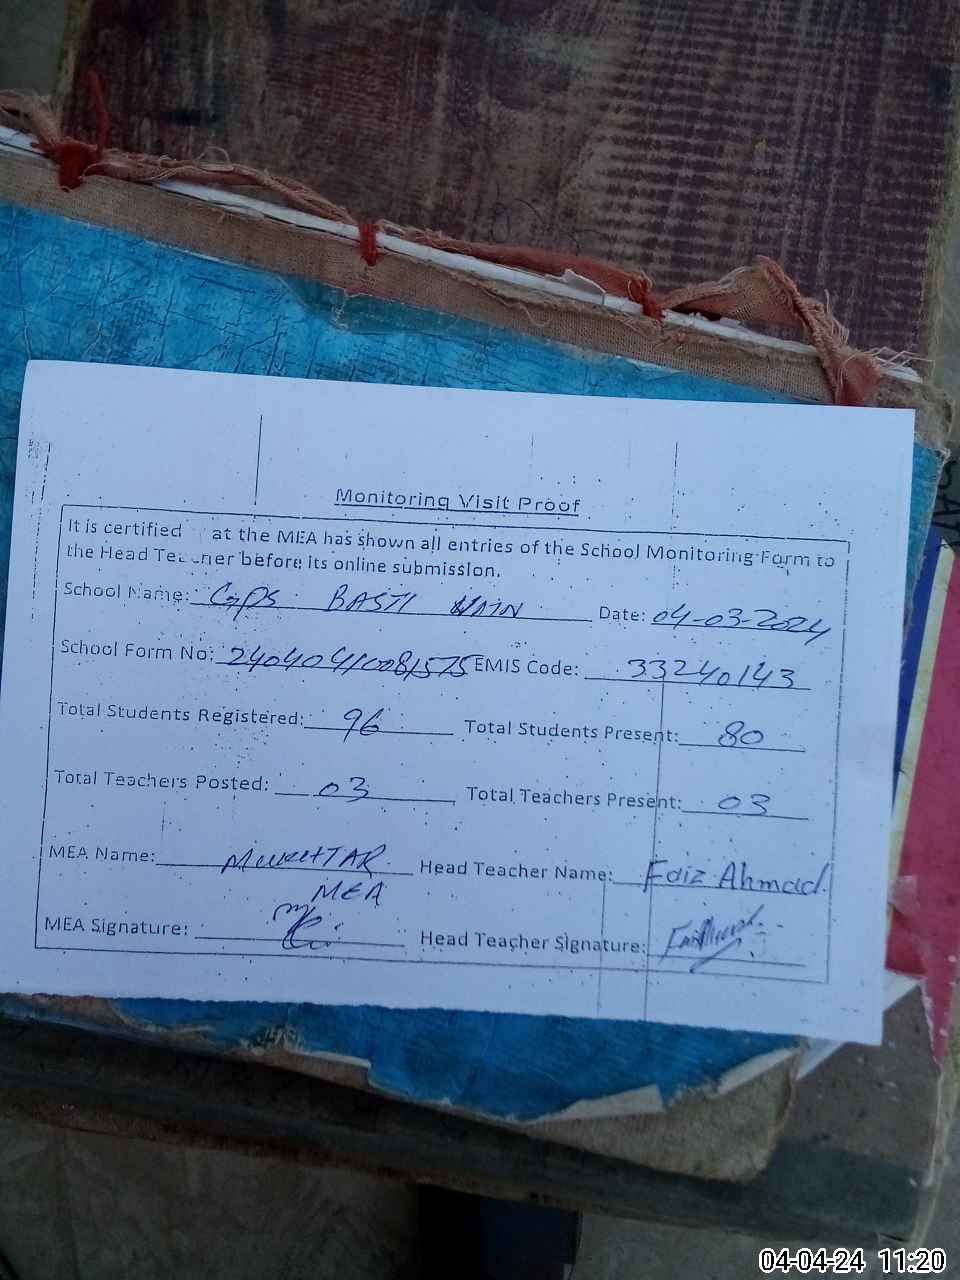 Monitoring Visit Proof
It is certified at the MEA has shown all entries of the School Monitoring Form to
the Head Teacher before its online submission.
School Name: GPS BASTI Date: 04-03-2024
School Form No: EMIS Code: 33240143
Total Students Registered: 96 Total Students Present: 80
Total Teachers Posted: 03 Total Teachers Present: 03
MEA Name: MUKHTAR Head Teacher Name: Faiz Ahmad.
MEA
MEA Signature: Head Teacher Signature:
04-04-24 11:20